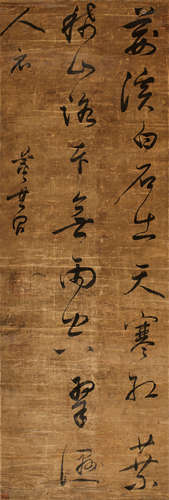 荊溪白石出天寒紅葉
稀山路元無雨空翠濕
人衣 董其昌